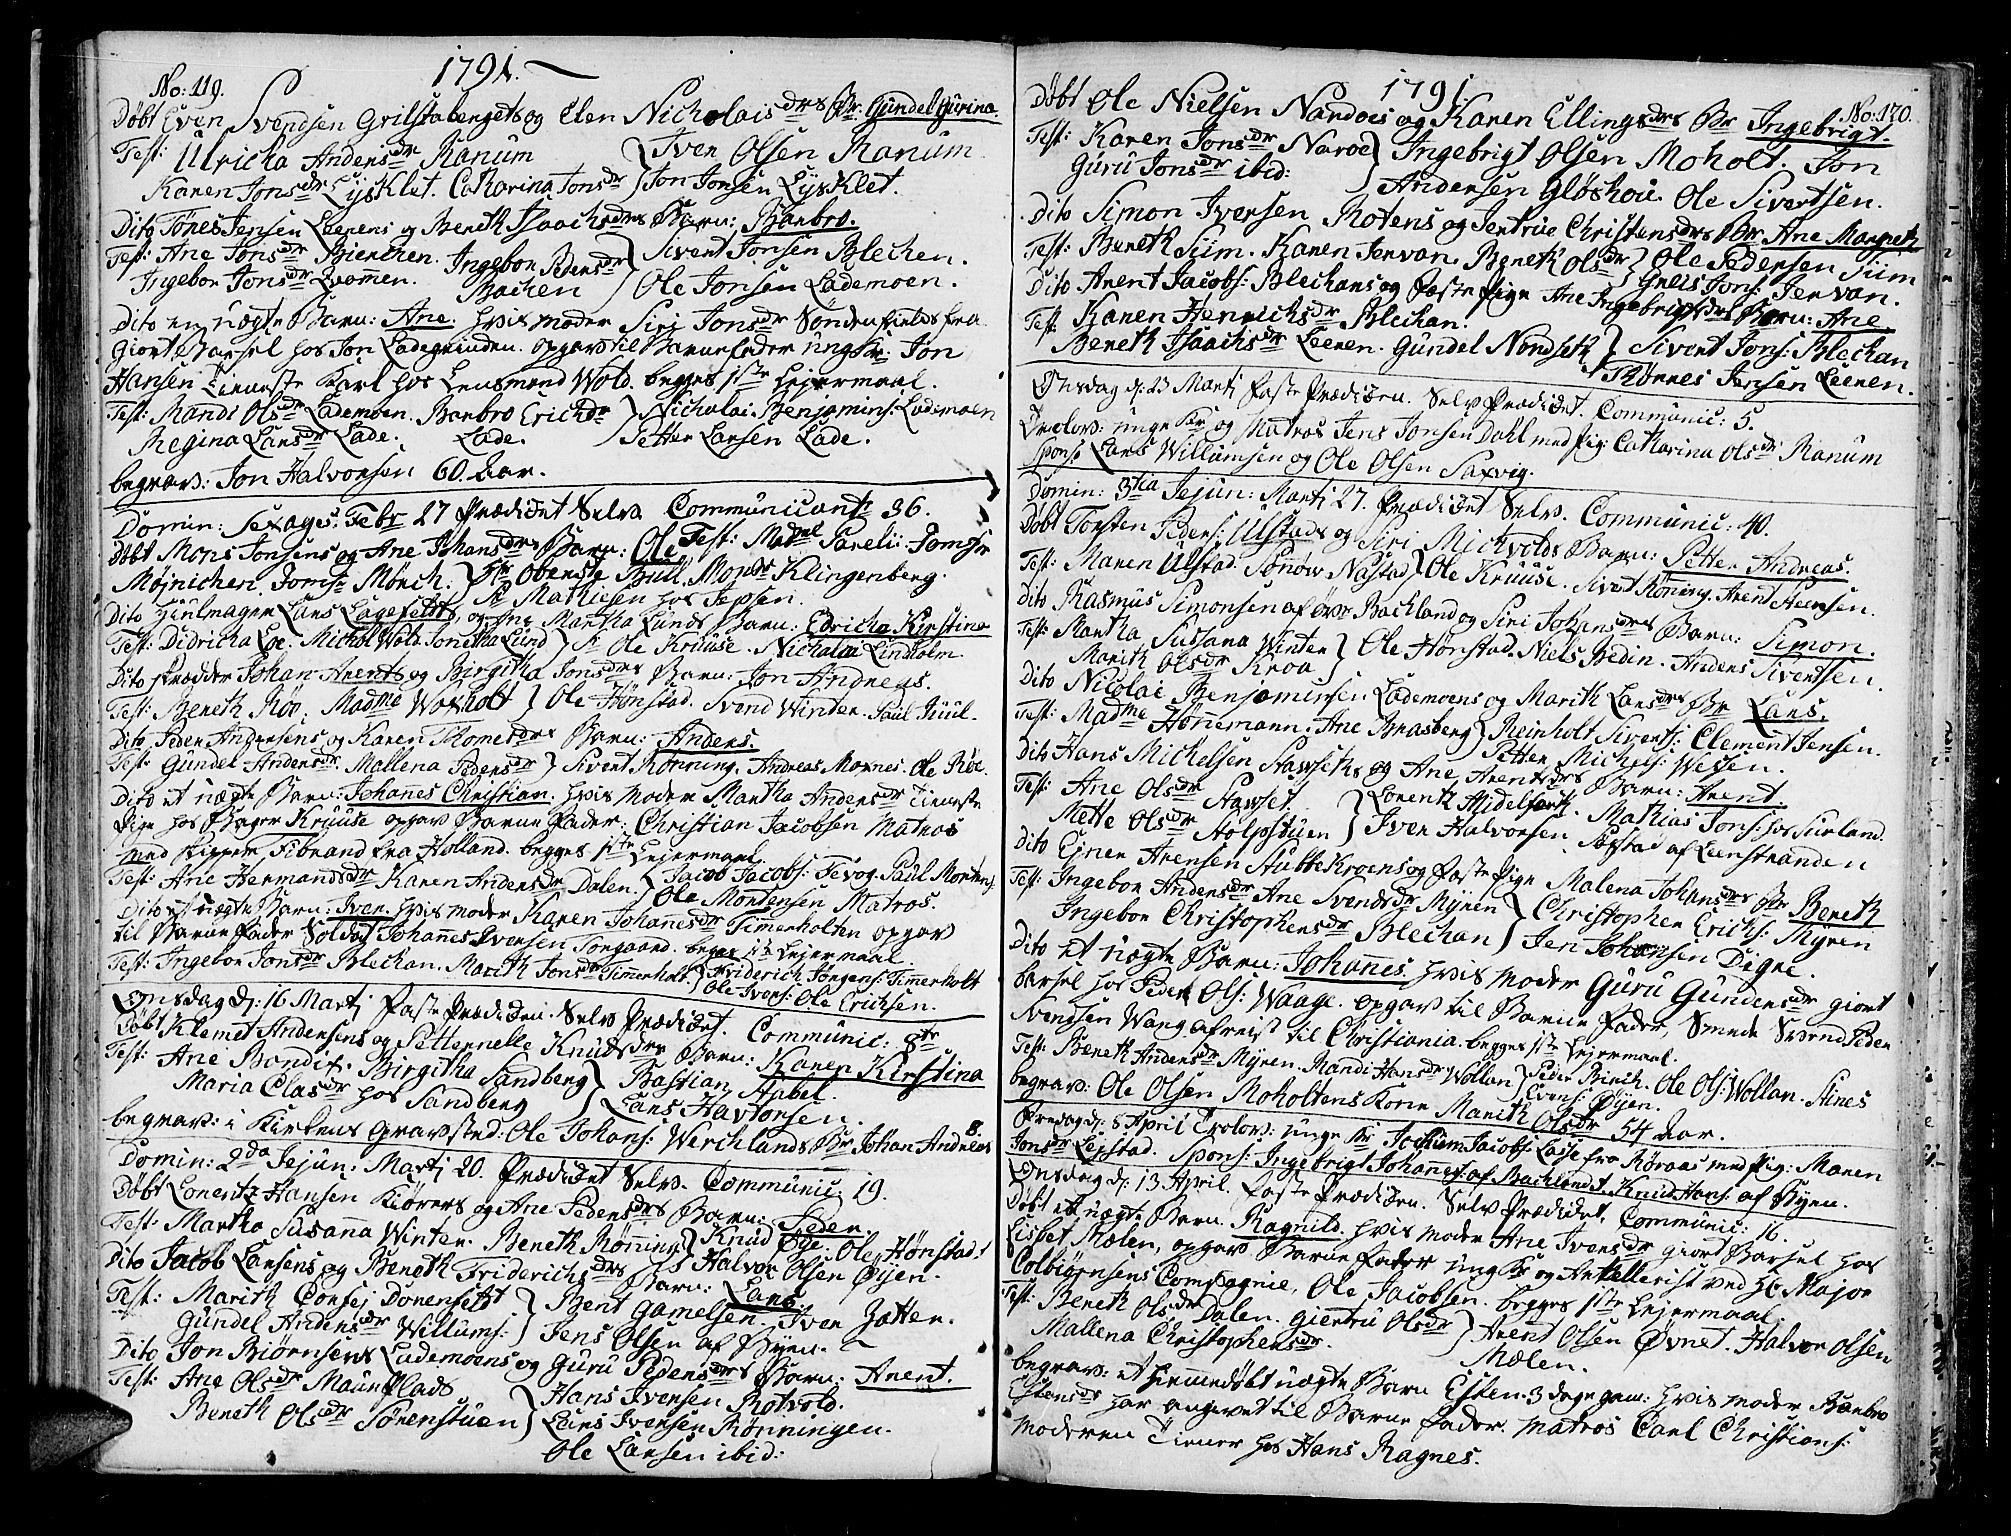 1791.
No: 119.
Døbt Even Svendsen Grilstabergets og Elen Nicholaisdrs Br: Gundel Gurina.
Test: Ulricha Andersdr Ranum } Iver Olsen Ranum
Karen Jonsdr Lysklet. Catharina Jonsdr } Jon Jonsen Lysklet.
Dito Tønes Jensen Leerens og Bereth Isaachsdrs Barn: Barbro.
Test: Ane Jonsdr Bierchen. Ingebor Pedersdr } Sivert Jonsen Blechen.
Ingebor Jonsdr Bachen } Ole Jonsen Lademoen.
Dito en uægte Barn: Ane. hvis moder Siri Jonsdr Søndenfields fra
giort Barsel hos Jon Ladegrinden. opgav til Barnefader ungkr: Jon
Hansen Tieneste Karl hos Lensmand Wold. begges 1ste Lejermaal.
Test: Mandi Olsdr Lademoen. Barbro Erichdr } Nicholai Benjamins: Lademoen
Regina Larsdr Lade. Lade. } Petter Larsen Lade.
begrav: Jon Halvorsen 60 Aar.
Domin: Sexages: Febr 27 Prædicket Selv. Communicant 36.
Døbt Mons Jonsens og Ane Johansdrs Barn: Ole Test: Madme Parelii. Jomfr
Møjnichen. Jomfr: Mørch. } Hr Oberste Bull. Monsr Klingenberg.
Sr Mathiesen hos Jepsen.
Dito Hiulmager Lars Lagesetts, og Ane Martha Lunds Barn: Edricha Kirstina
Test: Didricha Loe. Michol Wold. Jonetha Lund } Sr Ole Kruuse. Nicholai Lindholm
Dito skrædder Johan Arents og Birgitha Jonsdrs Barn: Jon Andreas.
Test: Bereth Røv. Madme Woxholt } Ole Hønstad. Svend Winter. Paul Juul.
Dito Peder Andersens og Karen Thomesdrs Barn: Anders.
Test: Gundel Andersdr. Mallena Pedersdr } Sivert Rønning. Andreas Moxnes. Ole Røe.
Dito et uægte Barn: Johannes Christian. hvis Moder Martha Andersdr Tieneste
Pige hos Bager Kruuse opgav Barne fader: Christian Jacobsen Matros
med skipper Fibrand fra Holland. begges 1ste Lejermaal.
Test: Ane Hermandsdr Karen Andersdr Dalen. { Jacob Jacobs: Tevog. Paul Mortens:
Ole Mortensen Matros.
Dito et uægte Barn: Iver. hvis moder Karen Johannesdr Timerholten opgav
til Barne fader Soldat Johannes Iversen Torgaard. begges 1ste Lejermaal.
Test: Ingebor Jonsdr Blechan. Marith Jonsdr Timerholt. } Friderich Jørgens: Timerholt
Ole Ivers: Ole Erichsen.
Onsdag d: 16 Martj faste Prædicken. Selv Prædicket. Communic: 8te
Døbt Klemet Andersens og Petternelle Knudsdrs Barn: Karen Kirstina
Test: Ane Bondit. Birgitha Sandberg } Bastian Aabel.
Maria Clasdr hos Sandberg } Lars Havtorsen.
begrav: i Kirkens gravsted: Ole Johans: Werchlands Br Johan Andreas 8.
Domin: 2da Jejun: Martj 20. Prædicket Selv. Communic: 19.
Døbt Lorentz Hansen Kiørers og Ane Pedersdrs Barn: Peder
Test: Martha Susanna Winter. Bereth Rønning } Knud Øye. Ole Hønstad.
Dito Jacob Larsens og Bereth Friderichsdrs Barn: Lars } Halvor Olsen Øyen.
Test: Marith Consej Donersett } Bent Gamelsen. Iver Zatter.
Gundel Andersdr Willums: } Jens Olsen af Byen.
Dito Jon Biørnsens Lademoens og Guru Pedersdrs Barn: Arent.
Test: Ane Olsdr Maurplads } Hans Iversen Rotvold.
Bereth Olsdr Sørenstuen } Lars Iversen Rønningen.
Ole Larsen ibid:
1791
No: 120.
Døbt Ole Nielsen Nardoes og Karen Ellingsdrs Br Ingebrigt.
Test: Karen Jonsdr Naroe } Ingebrigt Olsen Moholt. Jon
Guru Jonsdr ibid: } Andersen Gløshou. Ole Sivertsen.
Dito Simon Iversen Rotens og Jertrue Christensdrs Br Ane Margreth
Test: Bereth Siim. Karen Jervan. Bereth Olsdr } Ole Pedersen Siim
Greis Jons: Jervan.
Dito Arent Jacobs: Blechans og faste Pige Ane Ingebrigtsdrs Barn: Ane
Test: Karen Henrichsdr Blechan.
Bereth Isaachsdr Leeren. Gundel Nordseth } Sivert Jons: Blechan
Tønnes Jensen Leeren.
Onsdag d: 23 Martj faste Prædicken. Selv Prædicket. Communic: 5.
Trolov: unge Kr og Matros Jens Jonsen Dahl med Pig: Catharina Olsdr Ranum
Spons: Lars Willumsen og Ole Olsen Saxvig.
Domin: 3tia Jejun: Martj 27. Prædicket Selv. Communic: 40.
Døbt Torsten Peders: Ulstads og Siri Michvolds Barn: Petter Andreas.
Test: Maren Ulstad. Sonow Nastad } Ole Kruuse. Sivert Røning. Arent Heinsen.
Dito Rasmus Simonsen af øvre Bachland og Siri Johansdrs Barn: Simon.
Test: Martha Sussana Winter } Ole Hønstad. Niels Bedin. Anders Sivertsen.
Marith Olsdr Kroa
Dito Nicolai Benjaminsen Lademoens og Marith Larsdrs Br Lars.
Test: Madme Hønnemann. Ane Brasberg } Reinholt Siverts: Clement Jensen.
Petter Michels: Wesen.
Dito Hans Michelsen Stavseths og Ane Arentsdrs Barn: Arent.
Test: Ane Olsdr Stavset. } Lorentz Midelfart. Mathias Jons: hos Surland.
Mette Olsdr Stolpstuen } Iver Halvorsen Søpstad af Leerstranden
Dito Ejner Arensen Stubbekroens og faste Pige Malena Johansdrs Br Bereth
Test: Ingebor Andersdr. Ane Svendsdr Myren } Christopher Erichs: Myren
Ingebor Christophersdr Blechan } Jens Johansen Digre.
Dito et uægte Barn: Johannes. hvis moder Guru Gundersdr giort
barsel hos Peder Ols: Waage. opgav til Barne fader, Smede Svend Peder
Svendsen Wang afreist til Christiania. begges 1ste Lejermaal.
Test: Bereth Andersdr Myren. Randi Hansdr Wollan } Peder Birch. Ole Ols: Wollan. Stines
Evens: Øyen.
begrav: Ole Olsen Moholtens Kone Marith Olsdr 54 Aar.
Fredag d: 8 April Trolov: unge Kr Jochum Jacobs: Lasse fra Røraas med Pig: Maren
Jonsdr Lejstad. Spons: Ingebrigt Johannes: af Bachlandet. Knud Hans: af Byen.
Onsdag d: 13 April. faste Prædicken. Selv Prædicket. Communic: 16.
Døbt et uægte Barn. Ragnild. hvis moder Ane Iversdr giort Barsel hos
Lisbet Mælen, opgav Barne fader ungkr og Artellerist ved Hr Major
Colbiørnsens Compagnie, Ole Jacobsen. begges 1ste Lejermaal.
Test: Bereth Olsdr Dalen. Giertru Olsdr } Arent Olsen Øvret. Halvor Olsen
Mallena Christophersdr. } Mælen.
begrav: et hiemmedøbt uægte Barn Esten. 3 dage gam: hvis moder Barbro
Estensdr har angivet til Barne fader. Matros Carl Christians:
Moderen Tiener hos Hans Ragnes.